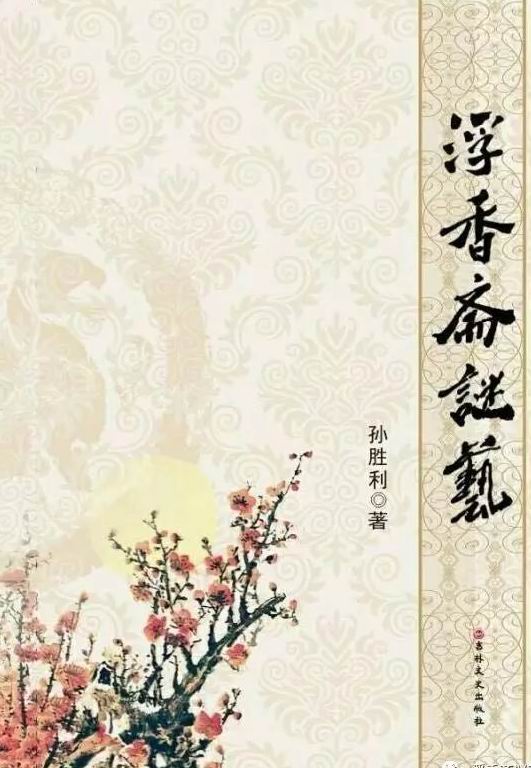 浮香斋謎藝
孙胜利◎著
吉林文史出版社